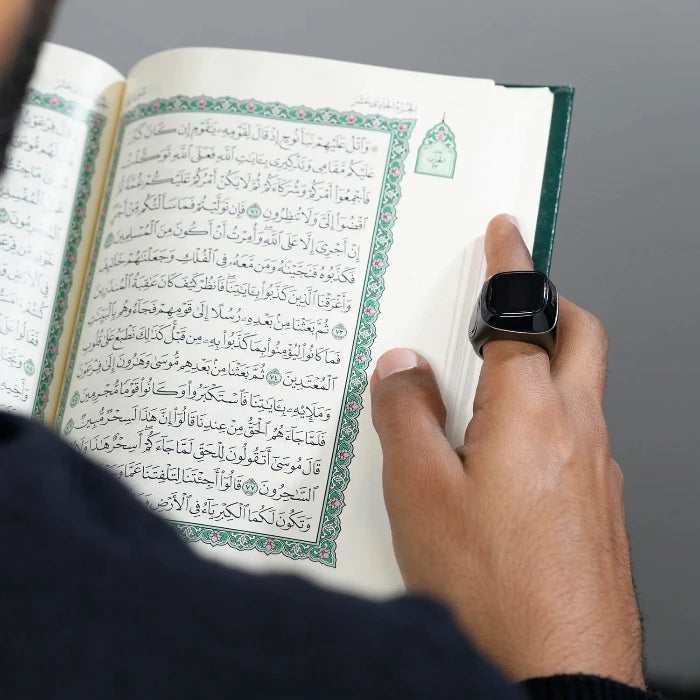 الجزء الحادي عشر
۞ وَٱتْلُ عَلَيْهِمْ نَبَأَ نُوحٍ إِذْ قَالَ لِقَوْمِهِۦ يَٰقَوْمِ إِن كَانَ كَبُرَ
عَلَيْكُم مَّقَامِي وَتَذْكِيرِي بِـَٔايَٰتِ ٱللَّهِ فَعَلَى ٱللَّهِ تَوَكَّلْتُ
فَأَجْمِعُوٓاْ أَمْرَكُمْ وَشُرَكَآءَكُمْ ثُمَّ لَا يَكُنْ أَمْرُكُمْ عَلَيْكُمْ غُمَّةً
ٱقْضُوٓاْ إِلَيَّ وَلَا تُنظِرُونِ ٧١ فَإِن تَوَلَّيْتُمْ فَمَا سَأَلْتُكُم مِّنْ أَجْرٍ
إِنْ أَجْرِيَ إِلَّا عَلَى ٱللَّهِ وَأُمِرْتُ أَنْ أَكُونَ مِنَ ٱلْمُسْلِمِينَ
فَكَذَّبُوهُ فَنَجَّيْنَٰهُ وَمَن مَّعَهُۥ فِي ٱلْفُلْكِ وَجَعَلْنَٰهُمْ خَلَٰٓئِفَ
وَأَغْرَقْنَا ٱلَّذِينَ كَذَّبُواْ بِـَٔايَٰتِنَا فَٱنظُرْ كَيْفَ كَانَ عَٰقِبَةُ ٱلْمُنذَرِينَ
٧٣ ثُمَّ بَعَثْنَا مِنۢ بَعْدِهِۦ رُسُلًا إِلَىٰ قَوْمِهِمْ فَجَآءُوهُم بِٱلْبَيِّنَٰتِ
فَمَا كَانُواْ لِيُؤْمِنُواْ بِمَا كَذَّبُواْ بِهِۦ مِن قَبْلُ كَذَٰلِكَ نَطْبَعُ عَلَىٰ قُلُوبِ
ٱلْمُعْتَدِينَ ٧٤ ثُمَّ بَعَثْنَا مِنۢ بَعْدِهِم مُّوسَىٰ وَهَٰرُونَ إِلَىٰ فِرْعَوْنَ
وَمَلَإِيْهِۦ بِـَٔايَٰتِنَا فَٱسْتَكْبَرُواْ وَكَانُواْ قَوْمًا مُّجْرِمِينَ
فَلَمَّا جَآءَهُمُ ٱلْحَقُّ مِنْ عِندِنَا قَالُوٓاْ إِنَّ هَٰذَا لَسِحْرٌ مُّبِينٌ
قَالَ مُوسَىٰٓ أَتَقُولُونَ لِلْحَقِّ لَمَّا جَآءَكُمْ أَسِحْرٌ هَٰذَا وَلَا
ٱلسَّٰحِرُونَ ٧٧ قَالُوٓاْ أَجِئْتَنَا لِتَلْفِتَنَا عَمَّا
وَتَكُونَ لَكُمَا ٱلْكِبْرِيَآءُ فِي ٱلْأَرْضِ